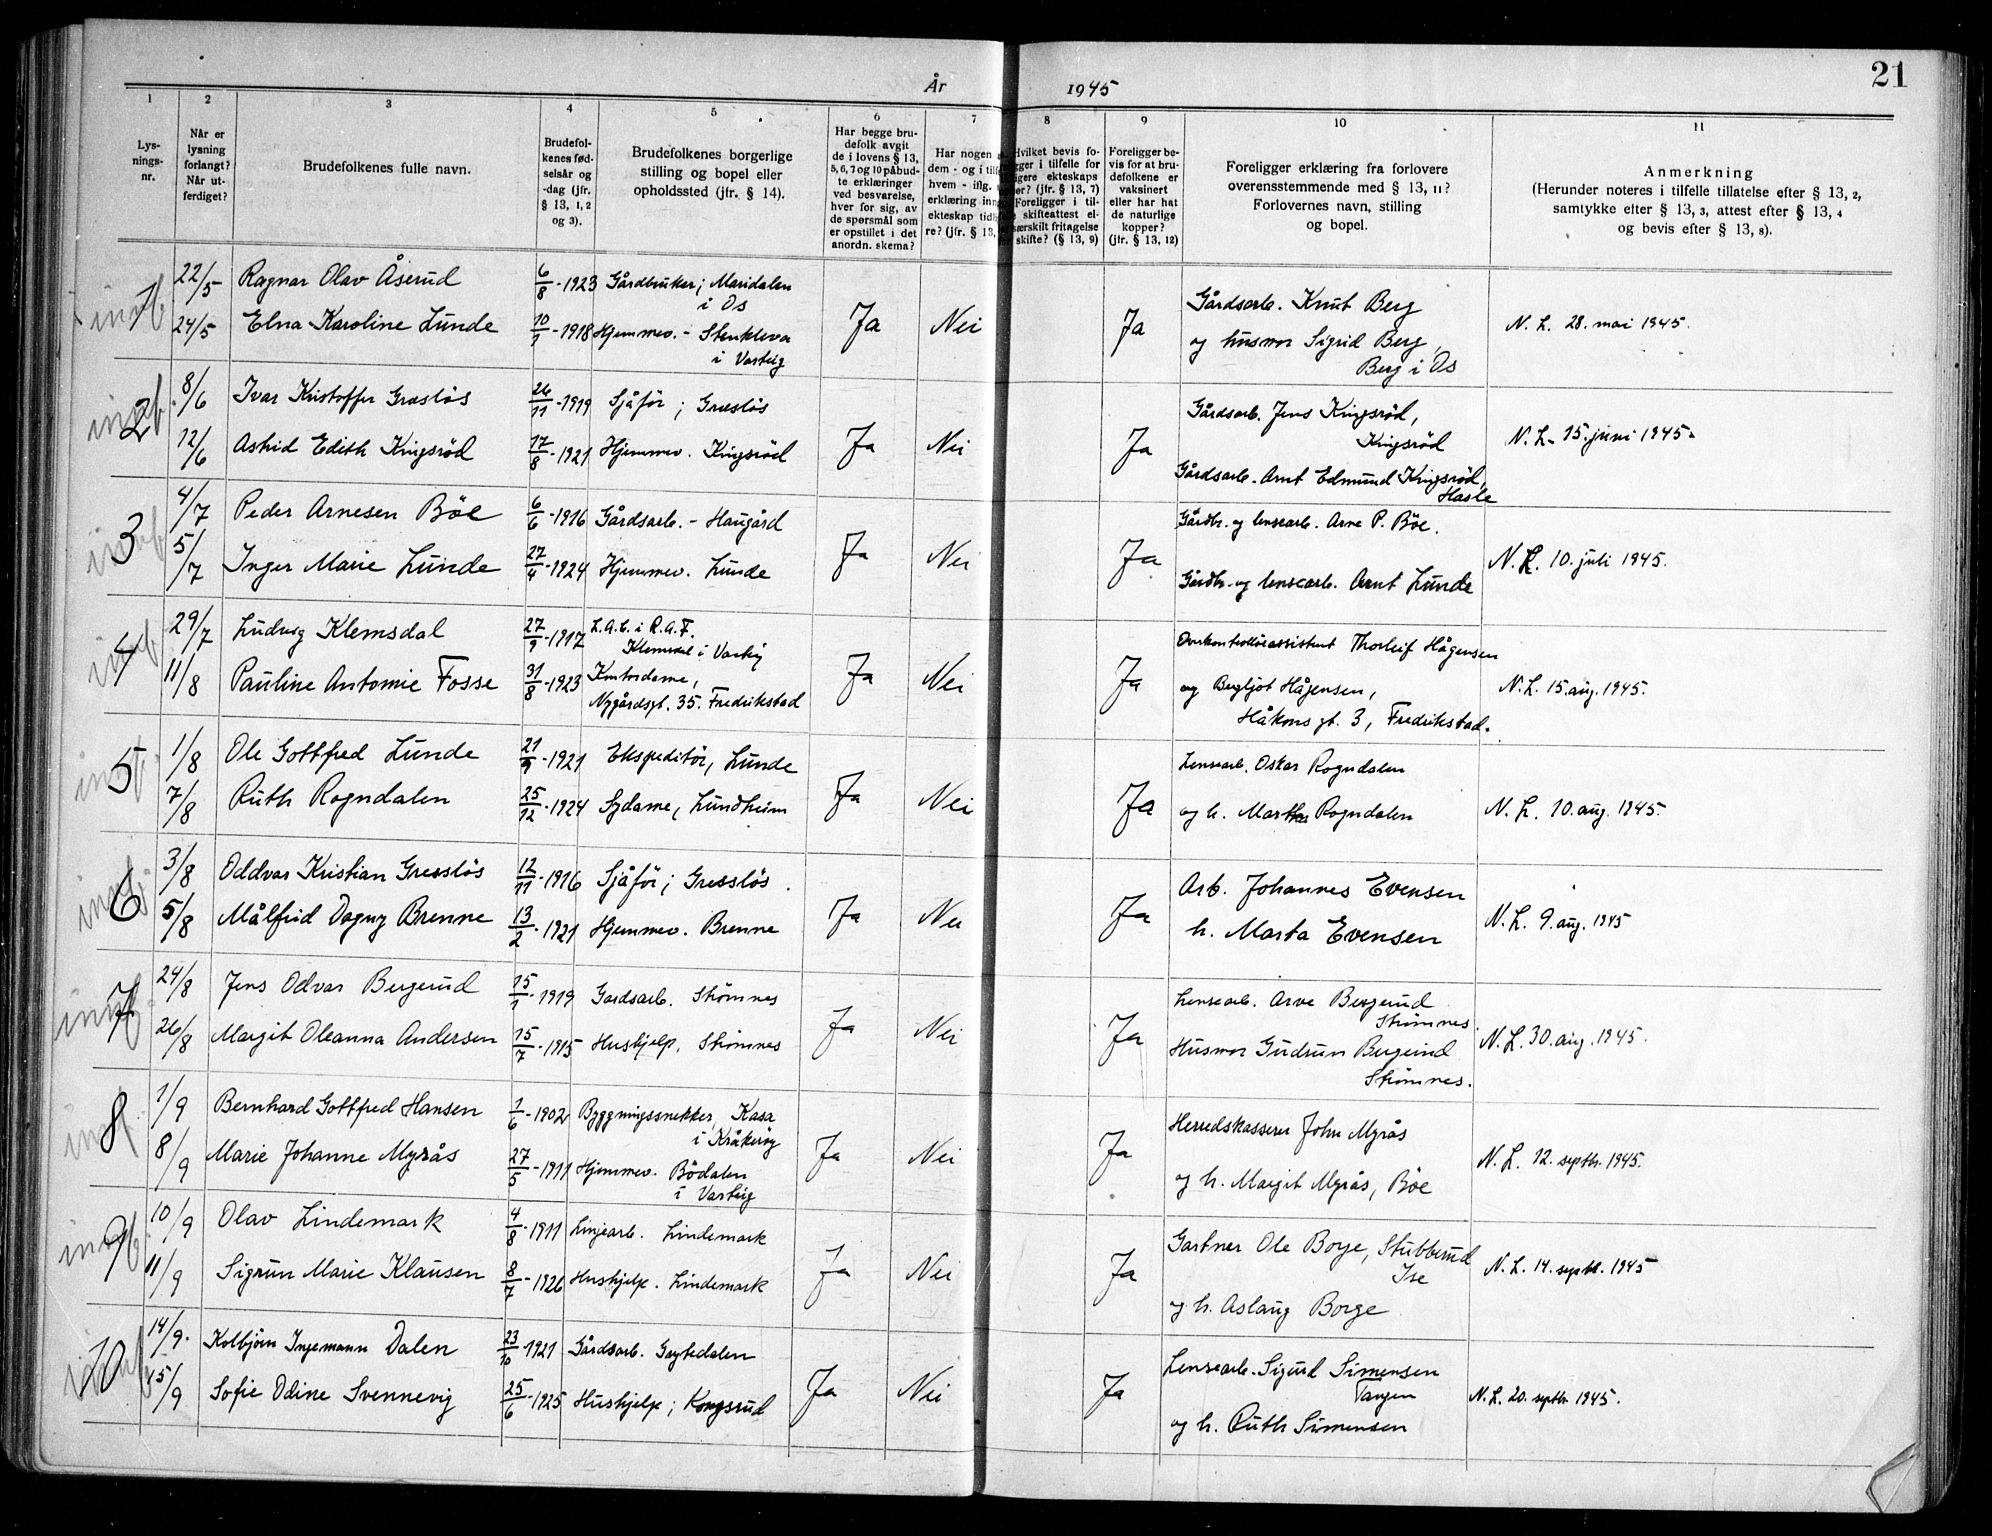 År 1945
21
1 2 3 4 5 6 7 8 9 10 11
Lysnings-nr.
Når er lysning forlangt? Når utferdiget?
Brudefolkenes fulle navn.
Brudefolkenes fødselsår og -dag (jfr. § 13, 1, 2 og 3).
Brudefolkenes borgerlige stilling og bopel eller opholdssted (jfr. § 14).
Har begge brudefolk avgitt de i lovens § 13, 5, 6, 7 og 10 påbudte erklæringer ved besvarelse, hver for sig, av de spørsmål som er opstillet i det anordn. skema?
Har nogen dem - og i hvem - iflg. erklæring ekteskap re? (jfr. § 13,
Hvilket bevis i tilfelle for ekteskaps (jfr. § 13, 7) Foreligger i skifteattest særskilt fritagelse skifte? (§ 13, 9)
Foreligger bevis for at brudefolkene er vaksinert eller har hatt de naturlige kopper? (jfr. § 13, 12)
Foreligger erklæring fra forlovere overensstemmende med § 13, 11? Forlovernes navn, stilling og bopel.
Anmerkning (Herunder noteres i tilfelle tillatelse efter § 13, 2, samtykke efter § 13, 3, attest efter § 13, 4 og bevis efter § 13, 8).
1 22/5 Ragnar Olav Åserud 6/8-1923 Gårdbruker; Maridalen i Os
24/5 Elna Karoline Lunde 10/1-1918 Hjemmev. - Stenkleva i Varteig Ja Nei Ja Gårdsarb. Knut Berg og husmor Sigrid Berg, Berg i Os N. L. 28. mai 1945.
2 8/6 Ivar Kristoffer Gresløs 26/11-1919 Sjåför; Gresløs
12/6 Astrid Edith Kingsröd 17/8-1921 Hjemmev. Kingsröd Ja Nei Ja Gårdsarb. Jens Kingsröd, Kingsröd Gårdsarb. Arnt Edmund Kingsröd, Hasle N. L. 15. juni 1945.
3 4/7 Peder Arnesen Böe 6/6-1916 Gårdsarb. - Haugård
5/7 Inger Marie Lunde 27/4-1924 Hjemmev. Lunde Ja Nei Ja Gårdbr. og lensearb. Arne P. Böe. Gårdbr. og lensearb. Arnt Lunde N. L. 10. juli 1945.
4 29/7 Ludvig Klemsdal 27/9-1917 L.A.C. i R.A.F. Klemsdal i Varteig
11/8 Pauline Antonie Fosse 31/8-1923 Kontordame, Nygårdsgt. 35. Fredrikstad Ja Nei Ja Overkontrollörassistent Thorleif Hågensen og Bergljot Hågensen, Håkons gt. 3, Fredrikstad. N. L. 15. aug. 1945.
5 1/8 Ole Gottfred Lunde 21/9-1921 Ekspeditör, Lunde
7/8 Ruth Rogndalen 25/12-1924 Sydame, Lundheim Ja Nei Ja Lensearb. Oskar Rogndalen og h. Martha Rogndalen N. L. 10. aug. 1945.
6 3/8 Oddvar Kristian Gresslös 12/11-1916 Sjåför; Gresslös.
5/8 Målfrid Dagny Brenne 13/2-1921 Hjemmev. Brenne Ja Nei Ja Arb. Johannes Evensen h. Marta Evensen N. L. 9. aug. 1945
7 24/8 Jens Odvar Bergerud 15/1-1919 Gardsarb. Strømnes
26/8 Margit Oleanna Andersen 15/7-1915 Hushjelp, Strømnes Ja Nei Ja Lensearb. Arve Bergerud Strømnes. Husmor Gudrun Bergerud Strømnes. N. L. 30. aug. 1945.
8 1/9 Bernhard Gottfred Hansen 1/6-1902 Byggningssnekker, Kasa i Kråkeröy
8/9 Marie Johanne Myrås 27/5-1911 Hjemmev. Bödalen i Varteig Ja Nei Ja Herredskasserer John Myrås og h. Margit Myrås, Böe N. L. 12. septbr. 1945.
9 10/9 Olav Lindemark 4/8-1911 Linjearb. Lindemark
11/9 Sigrun Marie Klausen 8/7-1926 Hushjelp. Lindemark Ja Nei Ja Gartner Ole Borge, Stubberud Ise og h. Aslaug Borge N. L. 14. septbr. 1945
10 14/9. Kolbjörn Ingemann Dalen 23/10-1921 Gårdsarb. Grytedalen
15/9 Sofie Odine Svennevig 25/6-1925 Hushjelp; Kongsrud Ja Nei Ja Lensearb. Sigurd Simensen Tangen og h. Ruth Simensen N. L. 20. septbr 1945.